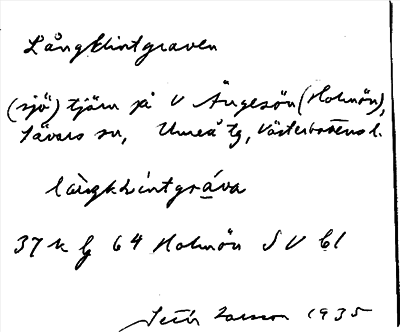 Långklintgraven
(sjö) tjärn på V Ängesön (Holmön),
Sävars sn, Umeå tg, Västerbottens l.
làŋgkLintgráva
37 k g 64 Holmön SV bl
Larsson 1935